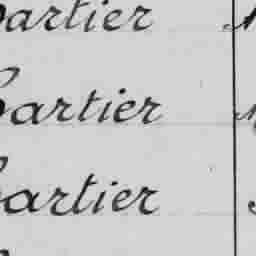 Cartier
Cartier
Cartier